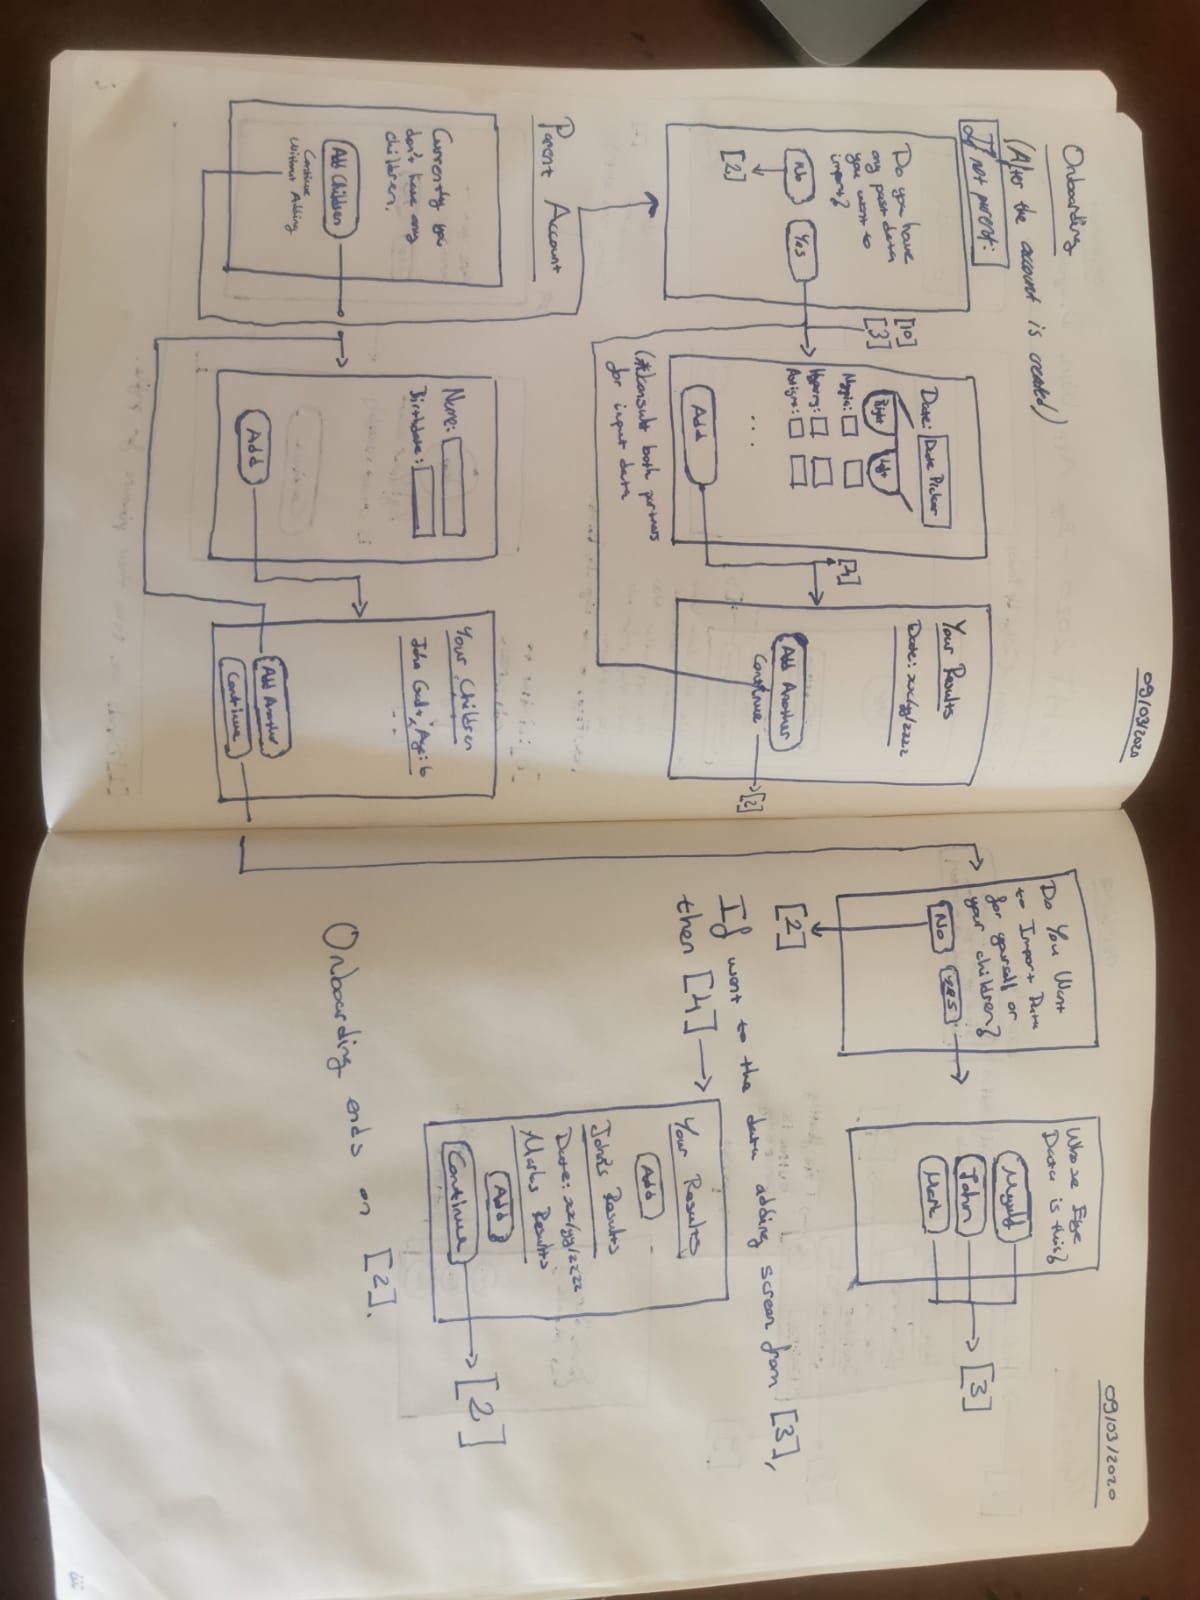 09/03/2020
Onboarding
(After the account is created)
If not parent:
Do you have
any past data
you want to
import?
No
Yes
[2]
[10]
[3]
Date: Date Picker
Right
Left
Myopia:
Hyperny:
Astigm:
...
Add
(*)consult both partners
for input data
[4]
Your Results
Date: xx/yy/zzzz
Add Another
Continue
[2]
Parent Account
Currently you
don't have any
children.
Add Children
Continue
Without Adding
Name:
Birthdate:
Add
Your Children
John Age: 6
Add Another
Continue
09/03/2020
Do You Want
to Import Data
for yourself or
your children?
No
Yes
[2]
Whose Eye
Data is this?
Myself
John
Mark
[3]
If went to the data adding screen from [3],
then [4]
Your Results
Add
John's Results
Date: xx/yy/zzzz
Marks Results
Add
Continue
[2]
Onboarding ends on [2].